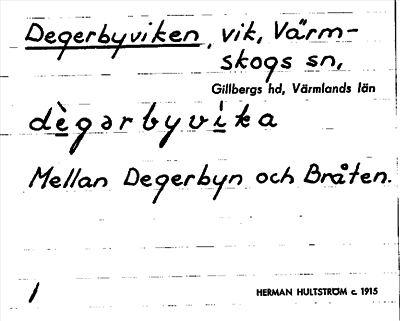 Degerbyviken, vik, Värm-
skogs sn,
Gillbergs hd, Värmlands län
dègərbyvìka
Mellan Degerbyn och Bråten.
1
HERMAN HULTSTRÖM c. 1915